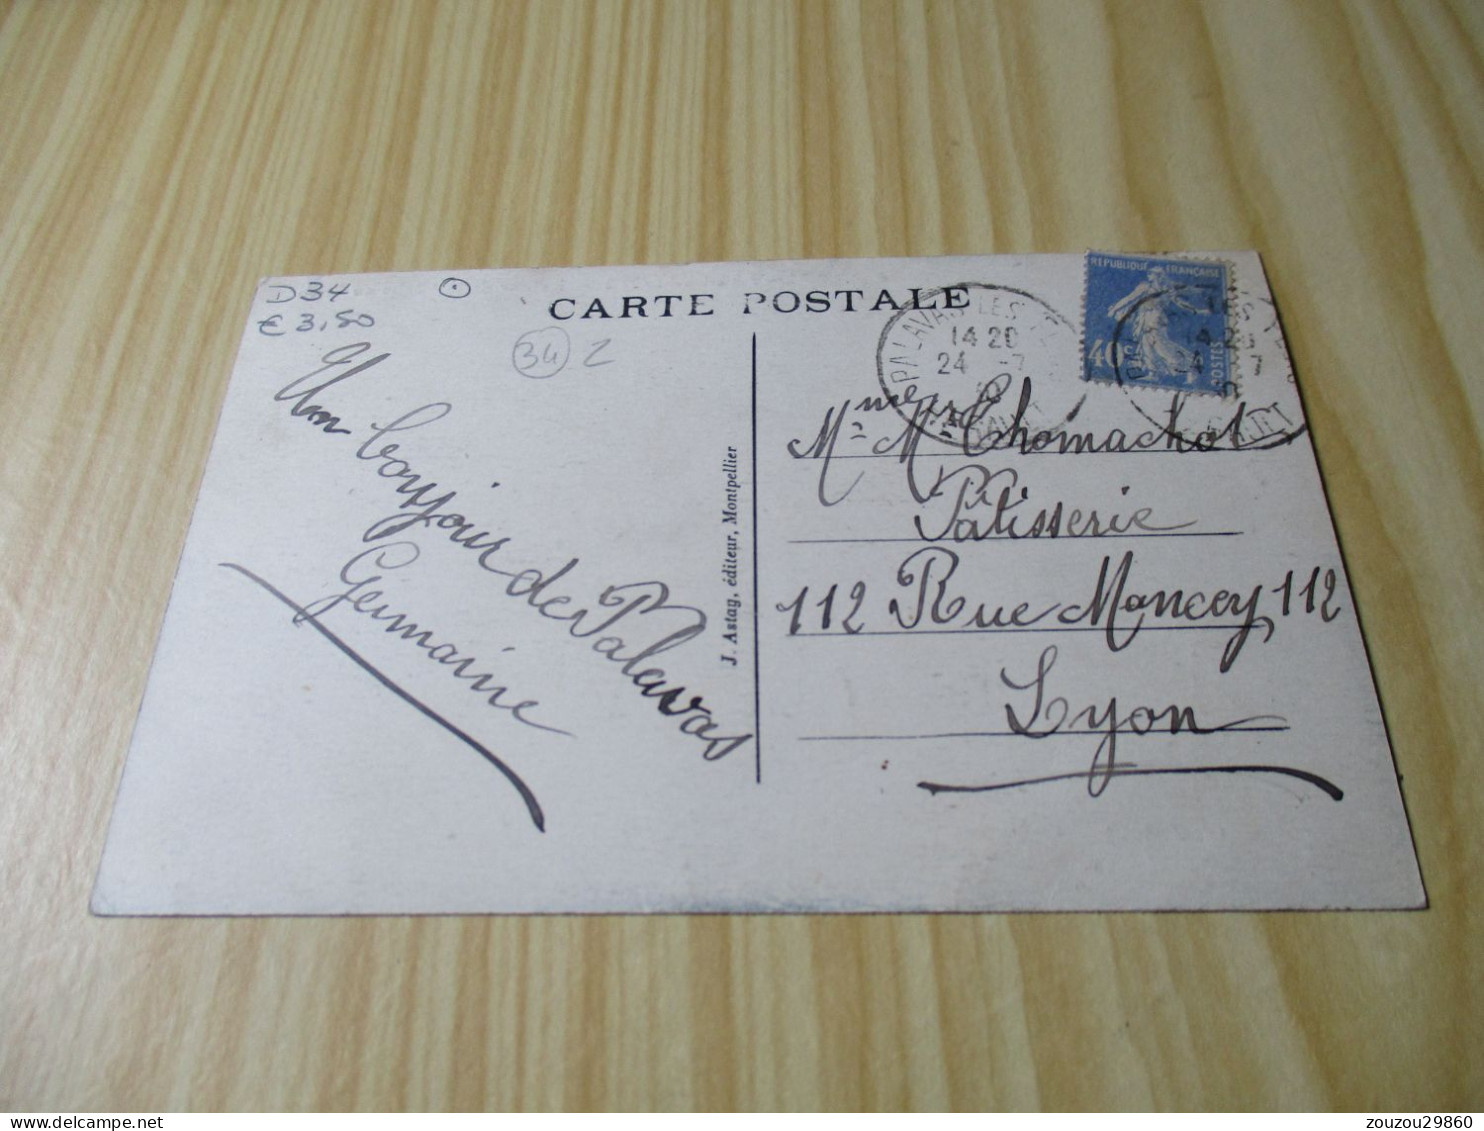 D34
€ 3,50
CARTE POSTALE
34 2
Un bonjour de Palavas
Germaine
J. Astag, éditeur, Montpellier
REPUBLIQUE FRANÇAISE
40c
POSTES
PALAVAS LES
14 20
24 -7
14 20
24 -7
Mme M Thomachot
Pâtisserie
112 Rue Mancey 112
Lyon
zouzou29860